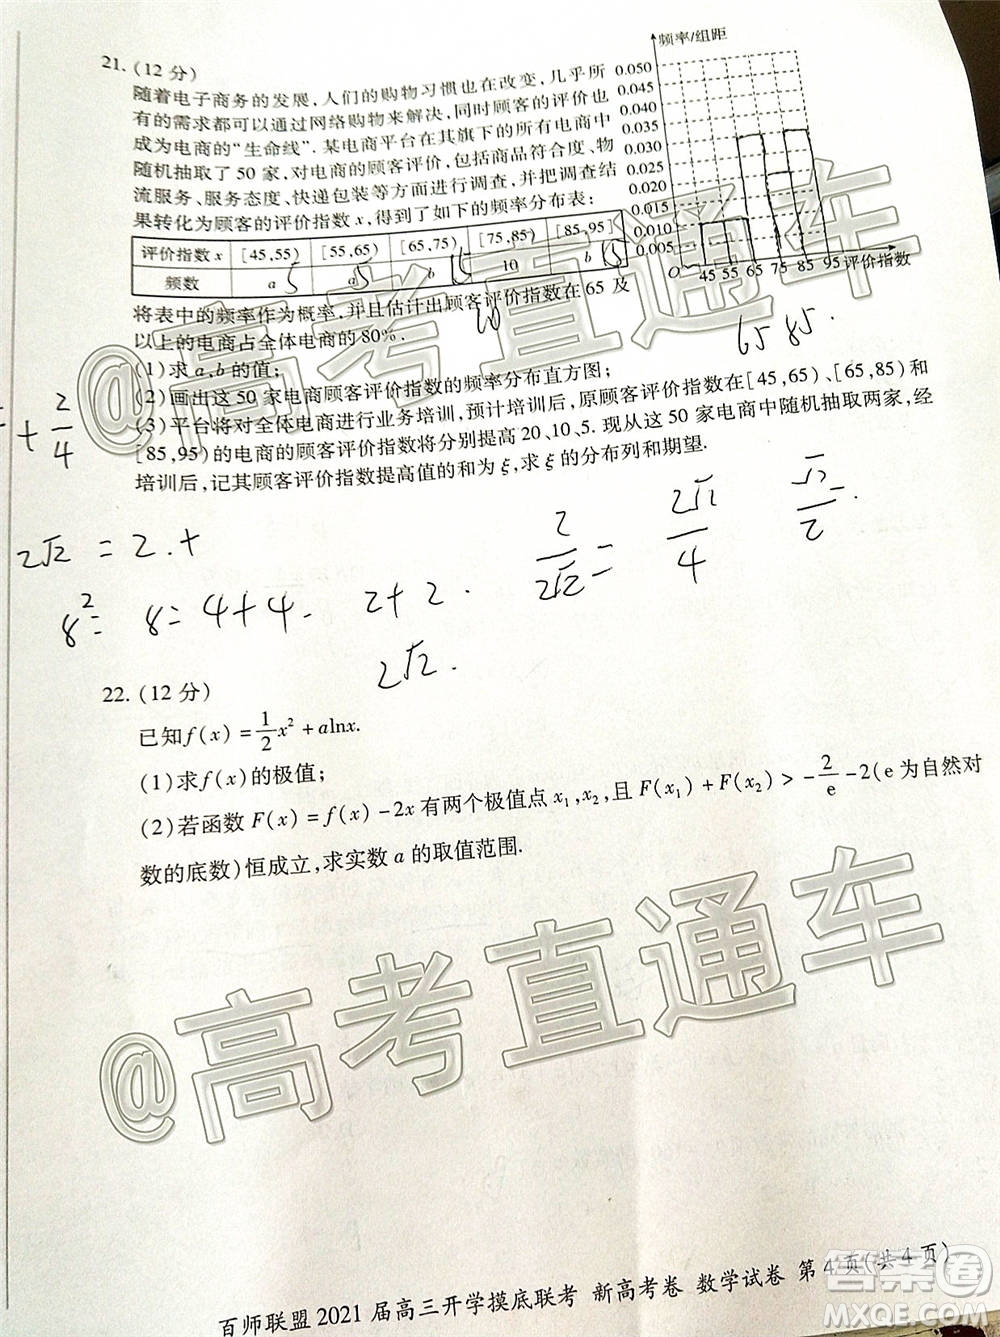 21.(12分)
随着电子商务的发展,人们的购物习惯也在改变,几乎所
有的需求都可以通过网络购物来解决,同时顾客的评价也
成为电商的“生命线”.某电商平台在其旗下的所有电商中
随机抽取了50家,对电商的顾客评价,包括商品符合度、物
流服务、服务态度、快递包装等方面进行调查,并把调查结
果转化为顾客的评价指数x,得到了如下的频率分布表:
评价指数x [45,55) [55,65) [65,75) [75,85) [85,95]
频数 a 5 a 5 b 15 10 b 15
频率/组距
0.050
0.045
0.040
0.035
0.030
0.025
0.020
0.015
0.010
0.005
O 45 55 65 75 85 95 评价指数
将表中的频率作为概率,并且估计出顾客评价指数在65及
以上的电商占全体电商的80%.
20
65 85.
(1)求a,b的值;
(2)画出这50家电商顾客评价指数的频率分布直方图;
(3)平台将对全体电商进行业务培训,预计培训后,原顾客评价指数在[45,65)、[65,85)和
[85,95)的电商的顾客评价指数将分别提高20、10、5.现从这50家电商中随机抽取两家,经
培训后,记其顾客评价指数提高值的和为ξ,求ξ的分布列和期望.
+ 2/4
2√2 = 2.+
2/2√2 =
√2/2
8²= 8=4+4. 2+2.
2√2.
22.(12分)
已知f(x)=1/2x²+alnx.
(1)求f(x)的极值;
(2)若函数F(x)=f(x)-2x有两个极值点x₁,x₂,且F(x₁)+F(x₂)>-2/e-2(e为自然对
数的底数)恒成立,求实数a的取值范围.
@高考直通车
@高考直通车
百师联盟2021届高三开学摸底联考 新高考卷 数学试卷 第4页(共4页)
答案圈
MXQE.COM